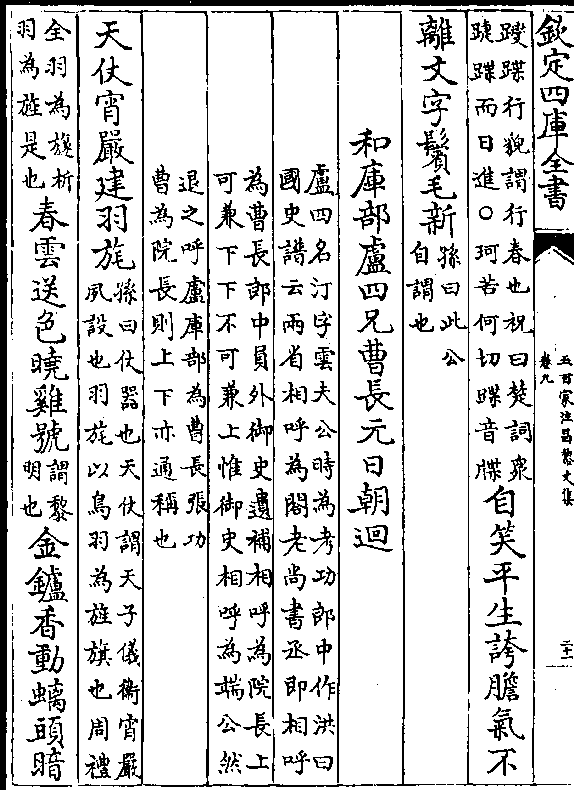 欽定四庫全書
五百家注昌黎文集
卷九
二十二
踥蹀行貌謂行春也祝曰楚詞衆
踥蹀而日進○珂苦何切蹀音牒
自笑平生誇膽氣不
離文字鬢毛新
孫曰此公
自謂也
和庫部盧四兄曹長元日朝迴
盧四名汀字雲夫公時為考功郎中作洪曰
國史譜云兩省相呼為閣老尚書丞即相呼
為曹長郎中員外御史遺補相呼為院長上
可兼下下不可兼上惟御史相呼為端公然
退之呼盧庫部為曹長張功
曹為院長則上下亦通稱也
天仗宵嚴建羽旄
孫曰仗器也天仗謂天子儀衛宵嚴
夙設也羽旄以鳥羽為旌旗也周禮
全羽為旞析
羽為旌是也
春雲送色曉雞號
謂黎
明也
金鑪香動螭頭暗